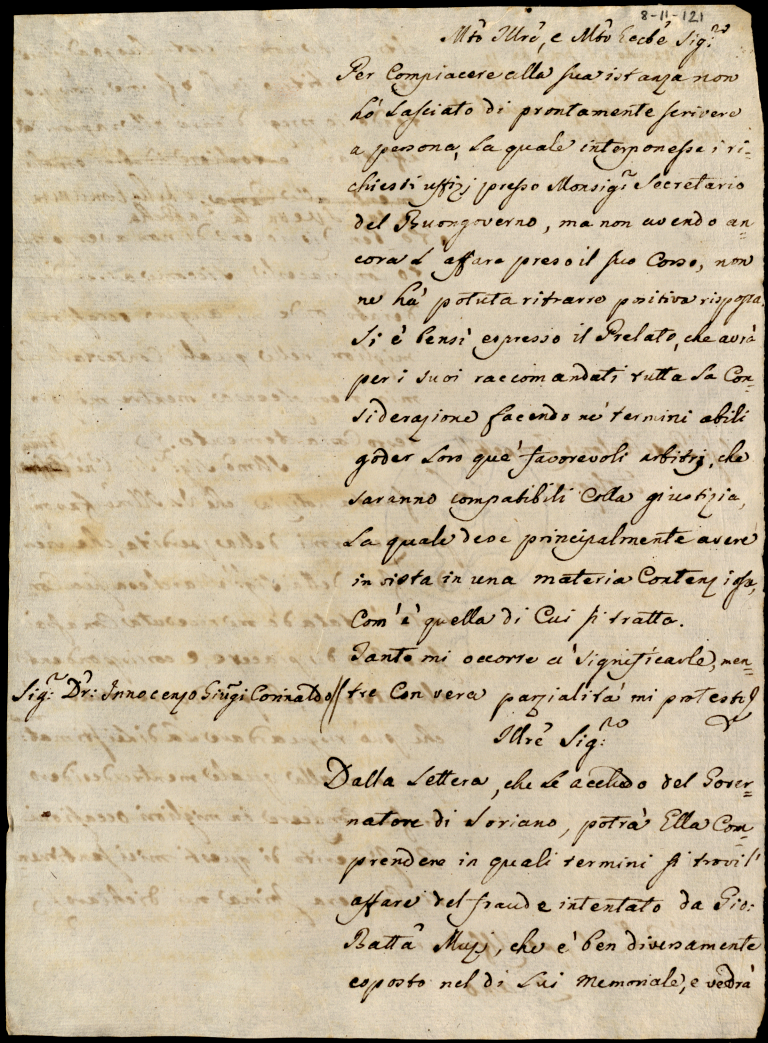 8-11-121
Mtō Illrē, e Mtō Eccē Sig:re
Per Compiacere alla sua istanza non
hò lasciato di prontamente scrivere
a persona, la quale interponesse i ri-
chiesti uffizj presso Monsig:r Secretario
del Buongoverno, ma non avendo an=
cora l'affare preso il suo Corso, non
ne hà potuta ritrarre positiva risposta.
Si è bensì espresso il Prelato, che avrà
per i suoi raccomandati tutta la Con=
siderazione facendo ne' termini abili
goder loro que' favorevoli arbitrj, che
saranno compatibili colla giustizia,
la quale deve principalmente avere
in vista in una materia Contenziosa,
Com'è quella di Cui si tratta.
Tanto mi occorre di significarle, men=
tre Con vera parzialità mi protesto
Sig:r Dr: Innocenzo Giugi Corinaldo //
Illrē Sig:re
Dalla lettera, che le accludo del Gover=
natore di Soriano, potrà Ella Com=
prendere in quali termini si trovi l'
affare del fraude intentato da Gio:
Battā Muzj, che è ben diversamente
esposto nel di lui memoriale, e vedrà